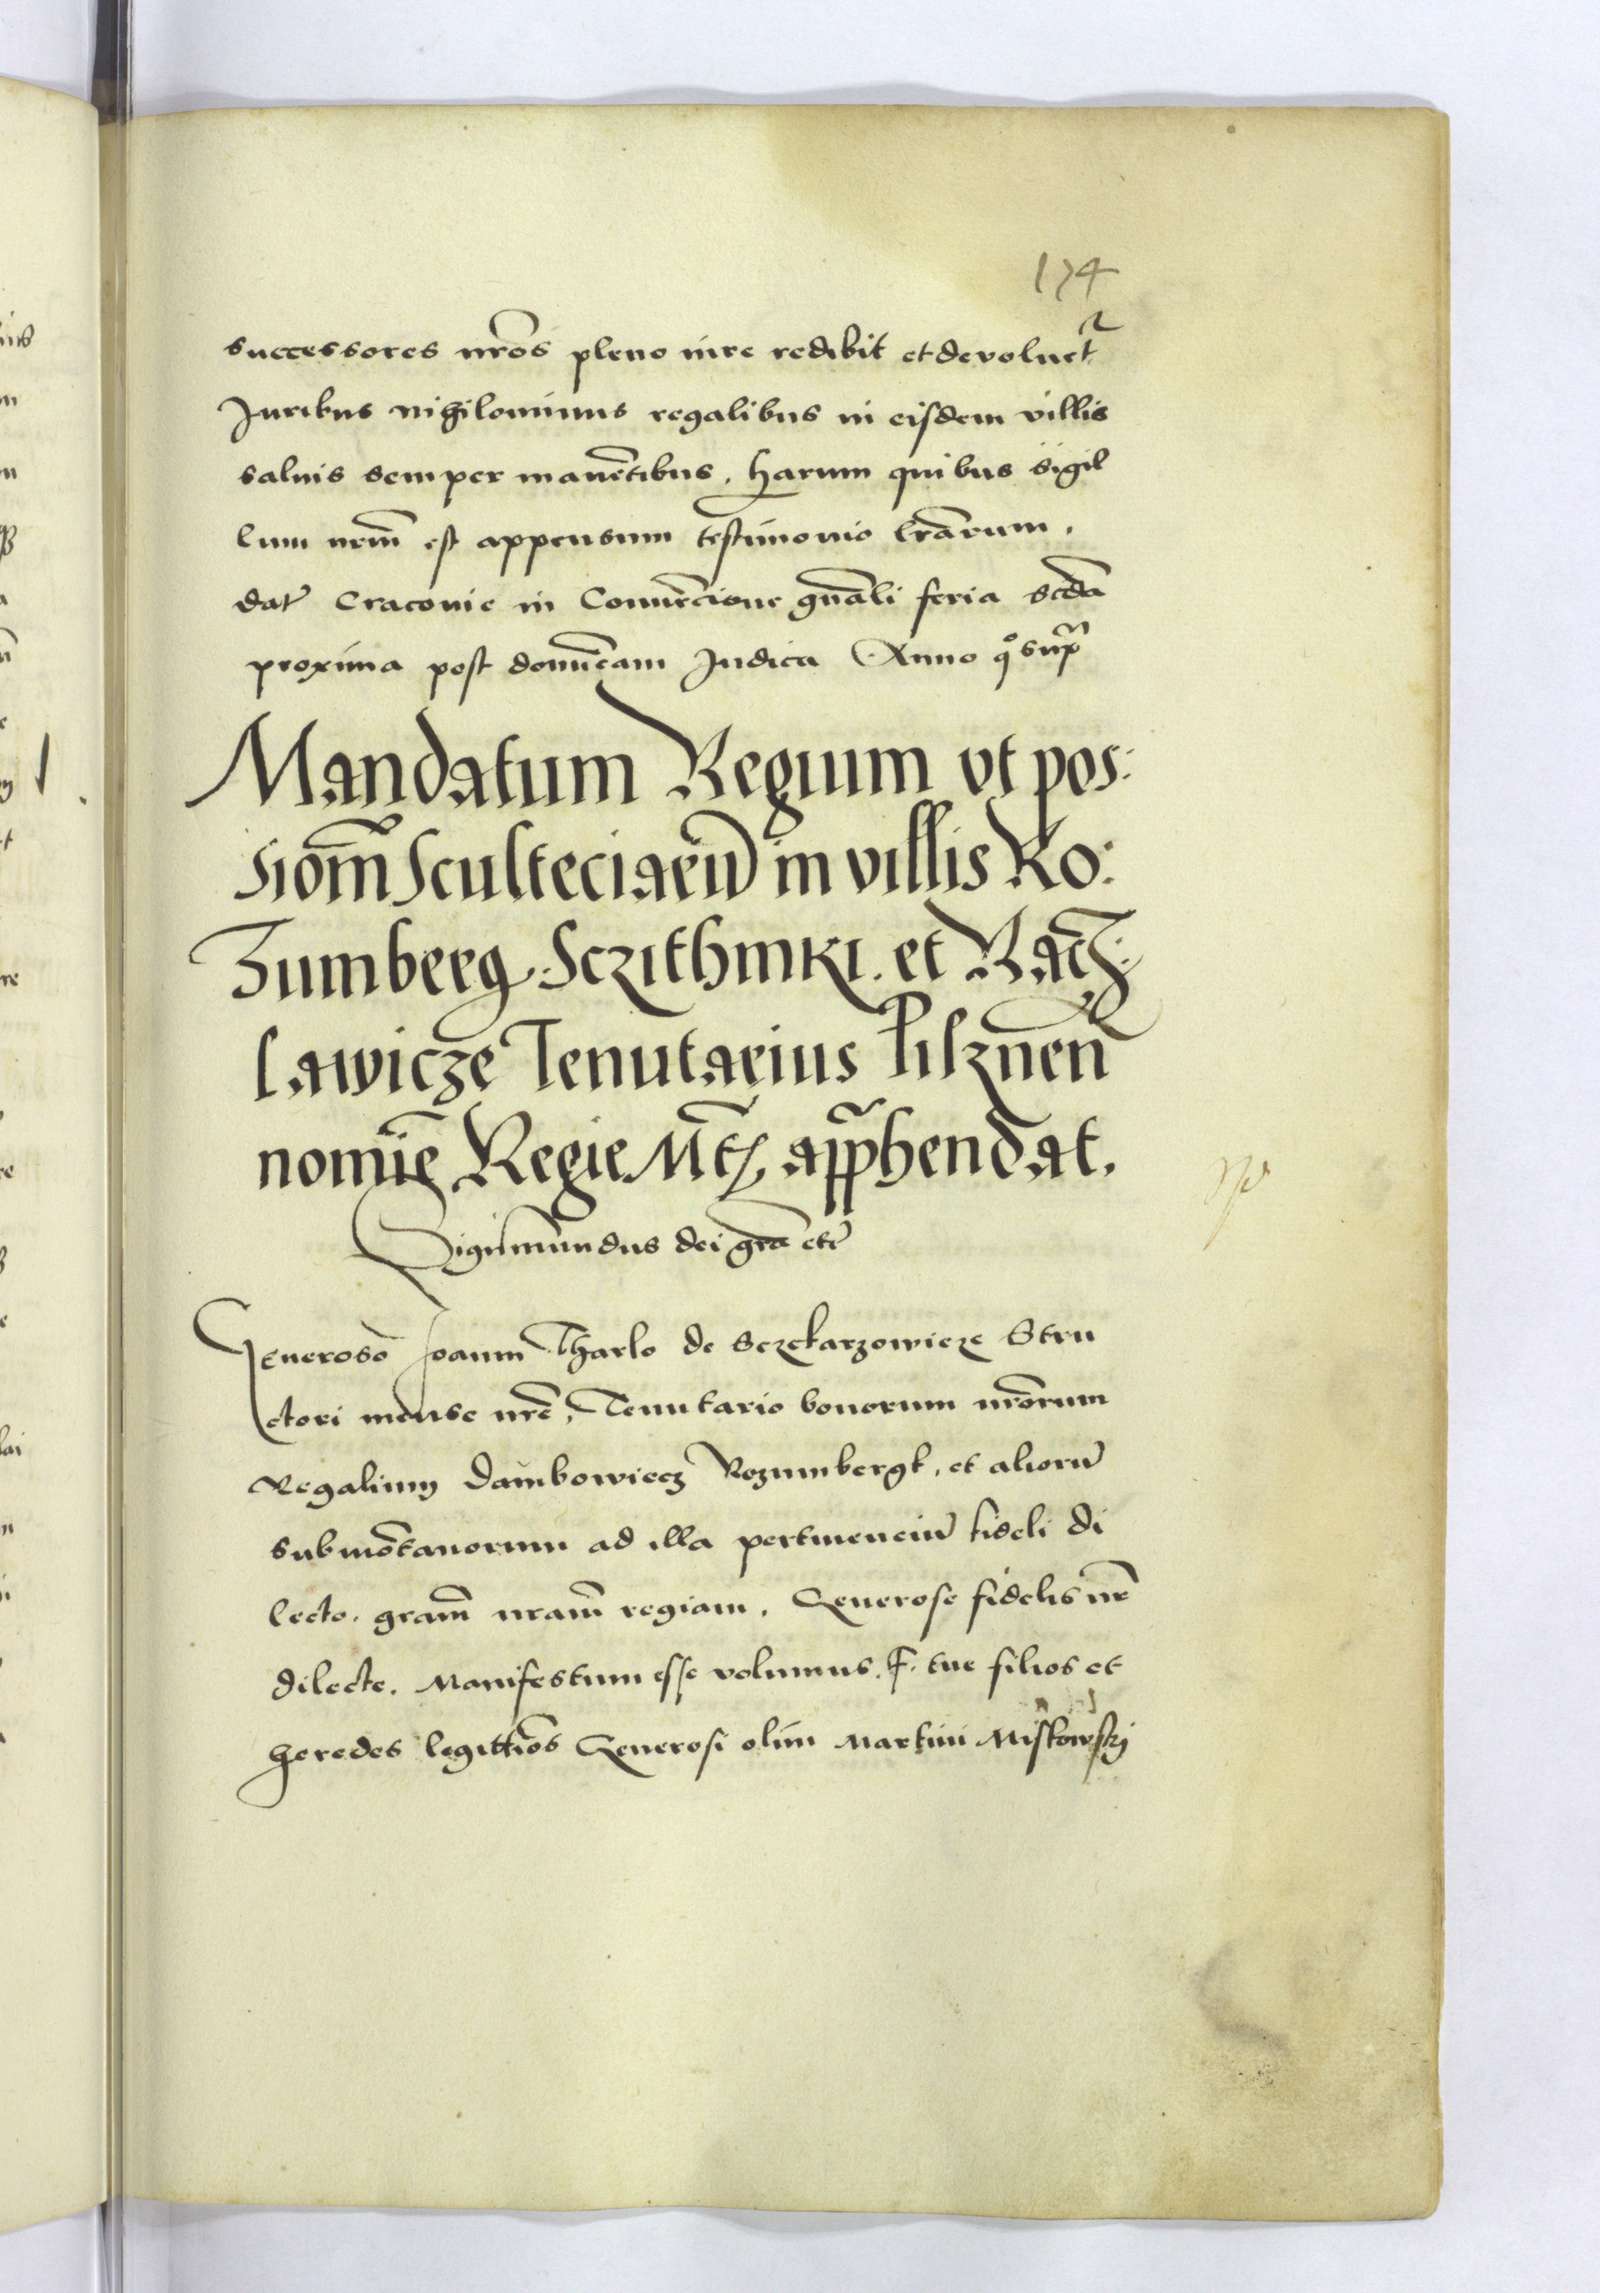 174
successores nr̃os pleno iure redibit et devoluet̃
Juribus nihilominus regalibus in eisdem villis
salvis semper manẽtibus. Harum quibus sigil
lum nr̃m est appensum testimonio lr̃arum.
dat̃ Cracovie in Convẽcione gñali feria scd̃a
proxima post domĩcam Judica Anno qº supr̃
Mandatum Regium vt pos:
sioñm Sculteciarũ in villis Ro:
Zumberg. Sczithniki. et Racz:
lawicze Tenutarius Pilznen̄
nomĩe Regie Mt̃ apprhendat.
Sigismundus dei gr̃a etc̃
Generoso Joanni Tharlo de Sczekarzowicze Stru
ctori mense nr̃e, Tenutario bonorum nr̃orum
Regalium Dambowiecz Rozumbergk, et aliorũ
submõtanorum ad illa pertinenciũ fideli di
lecto. gr̃am nr̃am regiam. Generose fidelis nr̃e
dilecte. Manifestum esse volumus. F. tue filios et
heredes legittĩos Generosi olim Martini Miskowskj